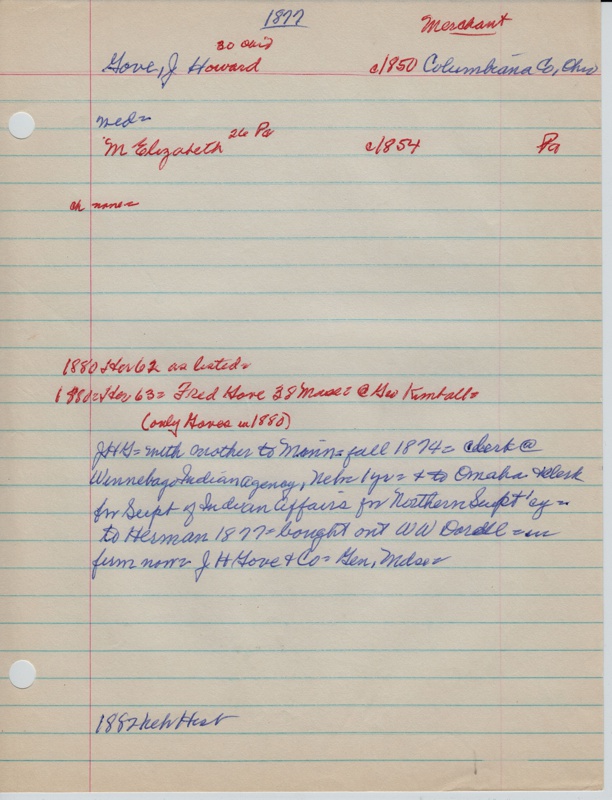 1877
Merchant
30 Ohio
Gove, J Howard c1850 Columbiana Co, Ohio
med=
"M Elizabeth 26 Pa c1854 Pa
ch none=
1880=Her 62 as listed=
1880=Her 63= Fred Gove 38 Mass= @ Geo Kimball=
(only Goves in 1880)
JHG= with mother to Minn= fall 1874= clerk @
Winnebago Indian agency, Neb= 1yr= & to Omaha & clerk
for Supt of Indian Affairs for Northern Supt'cy=
to Herman 1877= bought out WW =
firm now= J H Gove & Co= Gen, Mdse=
1882 Hist